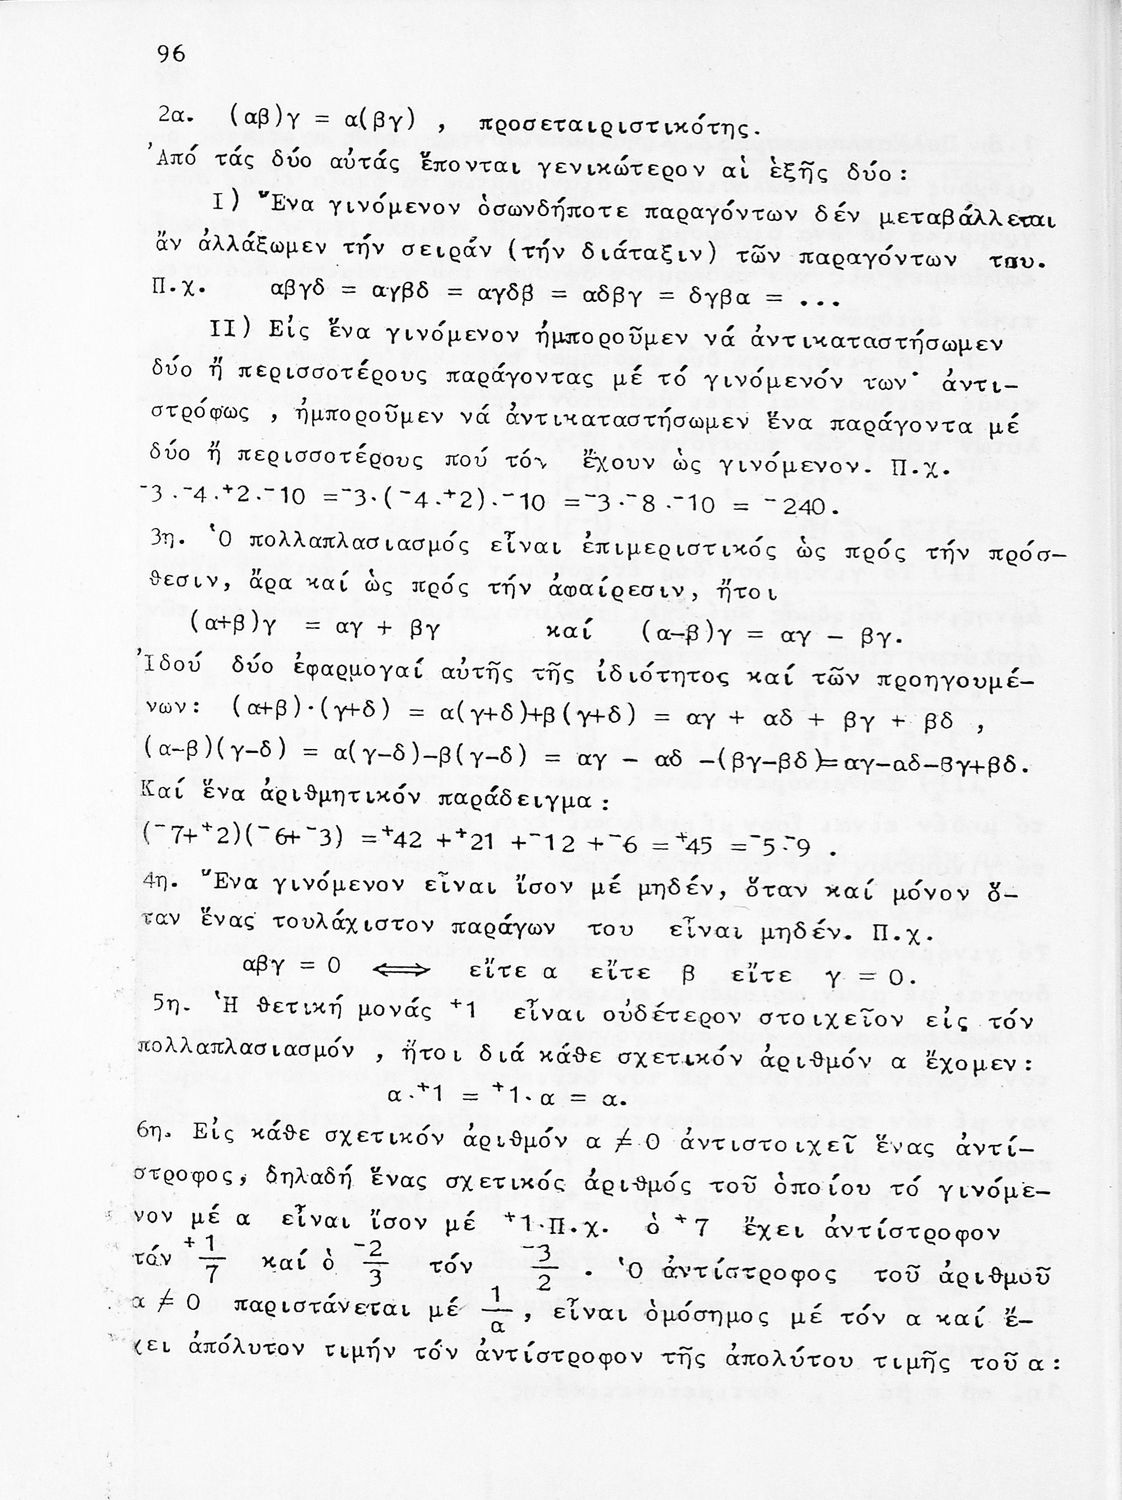 96
2α. (αβ)γ = α(βγ) , προσεταιριστικότης.
Ἀπό τάς δύο αὐτάς ἕπονται γενικώτερον αἱ ἑξῆς δύο:
I) Ἕνα γινόμενον ὁσωνδήποτε παραγόντων δέν μεταβάλλεται
ἄν ἀλλάξωμεν τήν σειράν (τήν διάταξιν) τῶν παραγόντων του.
Π.χ. αβγδ = αγβδ = αγδβ = αδβγ = δγβα = ...
II) Εἰς ἕνα γινόμενον ἠμποροῦμεν νά ἀντικαταστήσωμεν
δύο ἤ περισσοτέρους παράγοντας μέ τό γινόμενόν των˙ ἀντι-
στρόφως , ἠμποροῦμεν νά ἀντικαταστήσωμεν ἕνα παράγοντα μέ
δύο ἤ περισσοτέρους πού τόν ἔχουν ὡς γινόμενον. Π.χ.
⁻3.⁻4.⁺2.⁻10 =⁻3.(⁻4.⁺2).⁻10 =⁻3.⁻8.⁻10 = ⁻240.
3η. Ὁ πολλαπλασιασμός εἶναι ἐπιμεριστικός ὡς πρός τήν πρόσ-
θεσιν, ἄρα καί ὡς πρός τήν ἀφαίρεσιν, ἤτοι
(α+β)γ = αγ + βγ καί (α-β)γ = αγ - βγ.
Ἰδού δύο ἐφαρμογαί αὐτῆς τῆς ἰδιότητος καί τῶν προηγουμέ-
νων: (α+β).(γ+δ) = α(γ+δ)+β(γ+δ) = αγ + αδ + βγ + βδ ,
(α-β)(γ-δ) = α(γ-δ)-β(γ-δ) = αγ - αδ -(βγ-βδ)=αγ-αδ-βγ+βδ.
Καί ἕνα ἀριθμητικόν παράδειγμα:
(⁻7+⁺2)(⁻6+⁻3) =⁺42 +⁺21 +⁻12 +⁻6 =⁺45 =⁻5.⁻9 .
4η. Ἕνα γινόμενον εἶναι ἴσον μέ μηδέν, ὅταν καί μόνον ὅ-
ταν ἕνας τουλάχιστον παράγων του εἶναι μηδέν. Π.χ.
αβγ = 0 ⟺ εἴτε α εἴτε β εἴτε γ = 0.
5η. Ἡ θετική μονάς ⁺1 εἶναι οὐδέτερον στοιχεῖον εἰς τόν
πολλαπλασιασμόν , ἤτοι διά κάθε σχετικόν ἀριθμόν α ἔχομεν:
α.⁺1 = ⁺1.α = α.
6η. Εἰς κάθε σχετικόν ἀριθμόν α ≠ 0 ἀντιστοιχεῖ ἕνας ἀντί-
στροφος, δηλαδή ἕνας σχετικός ἀριθμός τοῦ ὁποίου τό γινόμε-
νον μέ α εἶναι ἴσον μέ ⁺1.Π.χ. ὁ ⁺7 ἔχει ἀντίστροφον
τόν +1/7 καί ὁ -2/3 τόν -3/2 . Ὁ ἀντίστροφος τοῦ ἀριθμοῦ
α ≠ 0 παριστάνεται μέ 1/α , εἶναι ὁμόσημος μέ τόν α καί ἔ-
χει ἀπόλυτον τιμήν τόν ἀντίστροφον τῆς ἀπολύτου τιμῆς τοῦ α: